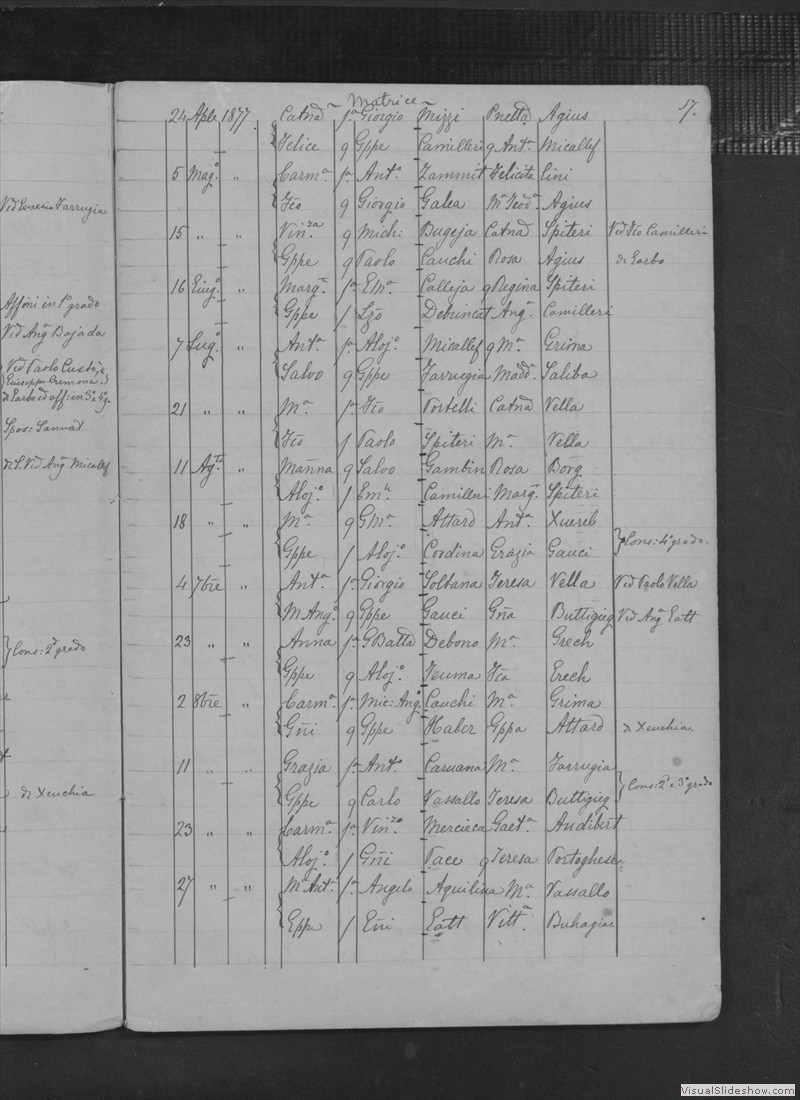 ~ Matrice ~
57.
24 Aple 1877 Catnª fª Giorgio Mizzi Pnettª Agius
Felice q Gppe Camilleri q Antª Micallef
5 Magº " Carmª fª Antº Zammit Felicita Cini
Fcº q Giorgio Galea Mª Teodª Agius
15 " " Vinza q Mich: Bugeja Catnª Spiteri Vid Fcº Camilleri
Gppe q Paolo Cauchi Rosa Agius di Garbo
16 Giugº " Margª fª Emª Calleja q Regina Spiteri
Gppe f Lzº Debrincat Angª Camilleri
7 Lugº " Antª fª Alojº Micallef q Mª Grima
Salvo q Gppe Farrugia Maddª Saliba
21 " " Mª fª Fcº Portelli Catnª Vella
Fcº f Paolo Spiteri Mª Vella
11 Agto " Marina q Salvo Gambin Rosa Borg
Alojº f Eml Camilleri Margª Spiteri
18 " " Mª q GMª Attard Antª Xuereb
Gppe f Alojº Cordina Grazia Gauci } Cons: 4º grado.
4 7bre " Antª fª Giorgio Soltana Teresa Vella Vid Paolo Vella
M Angº q Gppe Gauci Gña Buttigieg Vid Angª Gatt
23 " " Anna fª GBatta Debono Mª Grech
Gppe q Alojº Teuma Fca Grech
2 8bre " Carmª fª Mic: Angº Cauchi Mª Grima
Gñi q Gppe Haber Gppa Attard di Xeuchia.
11 " " Grazia fª Antº Caruana Mª Farrugia
Gppe q Carlo Vassallo Teresa Buttigieg } Cons: 2º e 3º grado
23 " " Carmª fª Vinzo Mercieca Gaetª Audibert
Alojº f Gñi Pace q Teresa Portoghese
27 " " Mª Antª fª Angelo Aquilina Mª Vassallo
Gppe f Gñi Gatt Vittª Buhagiar
Farrugia
Affini in 1º grado
Vid Angª Bajada
Vid Paolo Custo, e
Giuseppe Cremona.
di Garbo ed aff: in 3º e 4º g.
Spos: Sannat
di S. Vid Angª Micallef
} Cons: 2º grado
di Xeuchia
VisualSlideshow.com